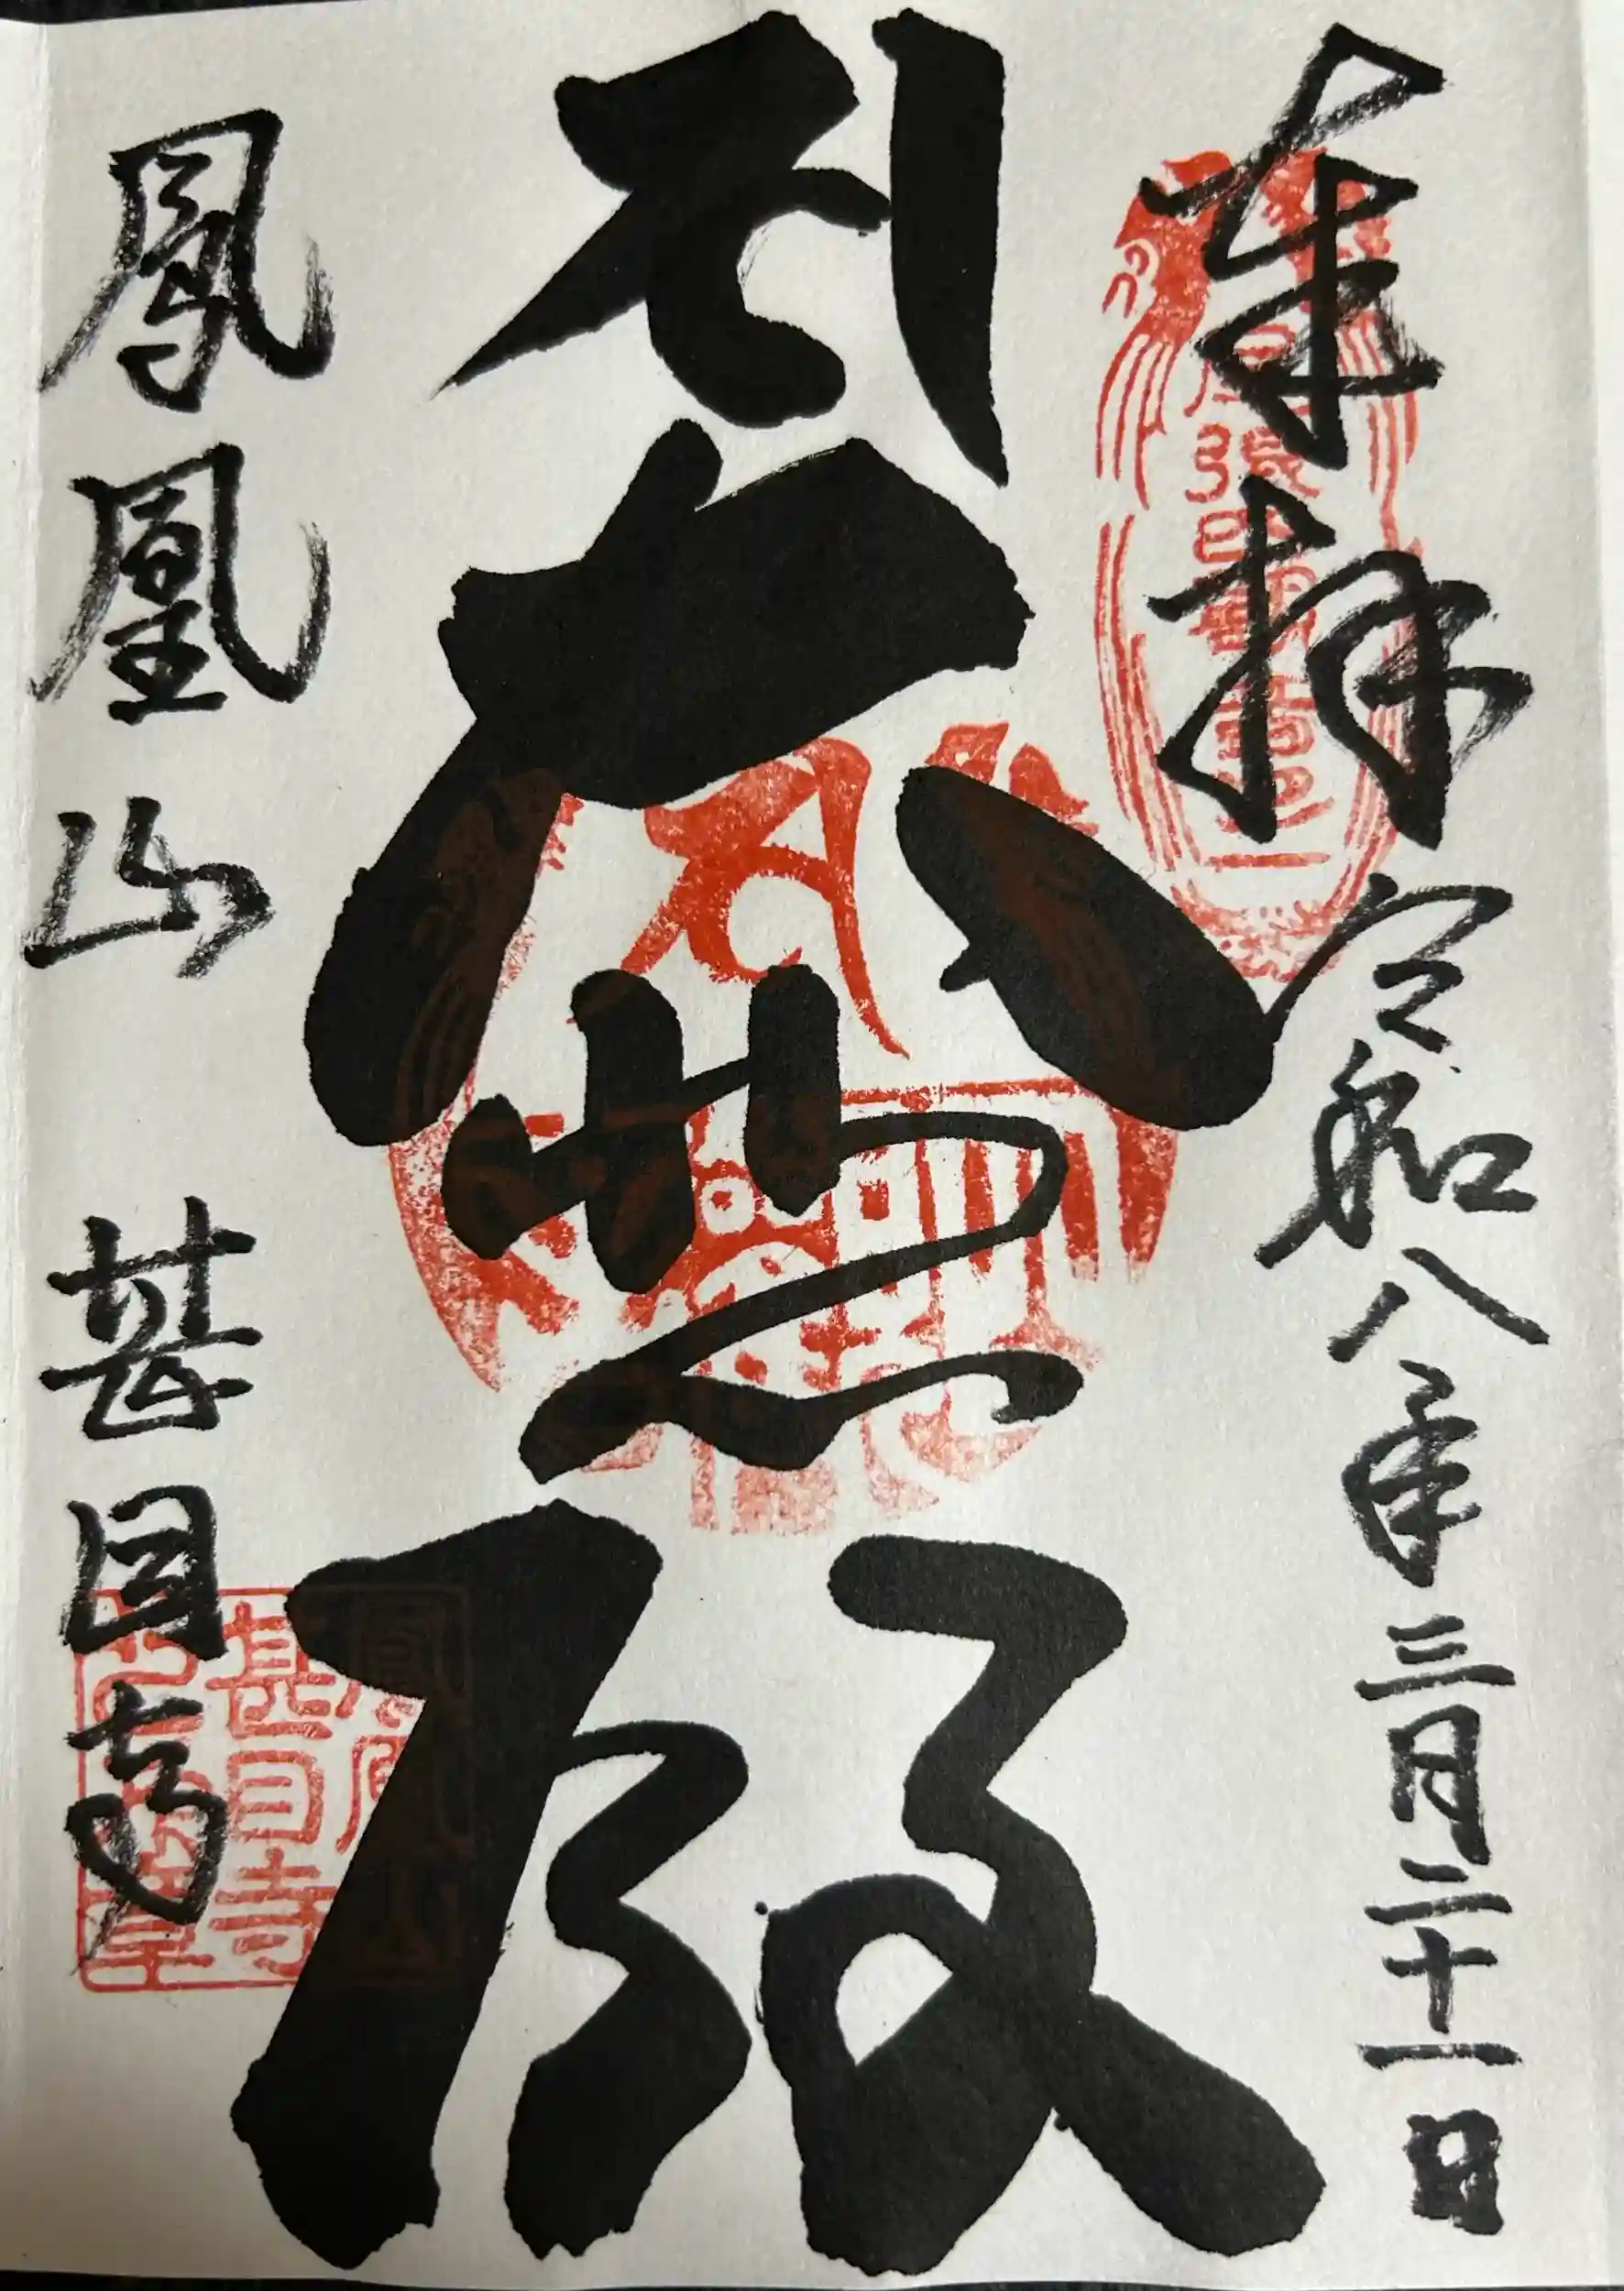 奉拝 令和八年三月二十一日
大悲殿
鳳凰山 甚目寺
鳳凰山
甚目寺